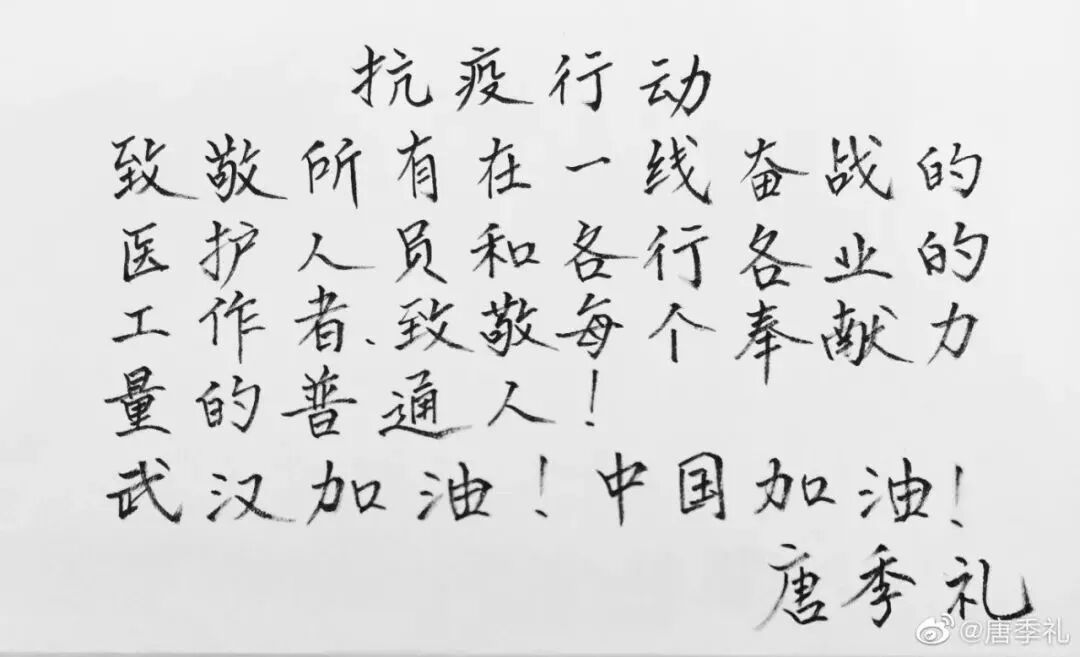 抗疫行动
致敬所有在一线奋战的
医护人员和各行各业的
工作者、致敬每个奉献力
量的普通人！
武汉加油！中国加油！
唐季礼
@唐季礼